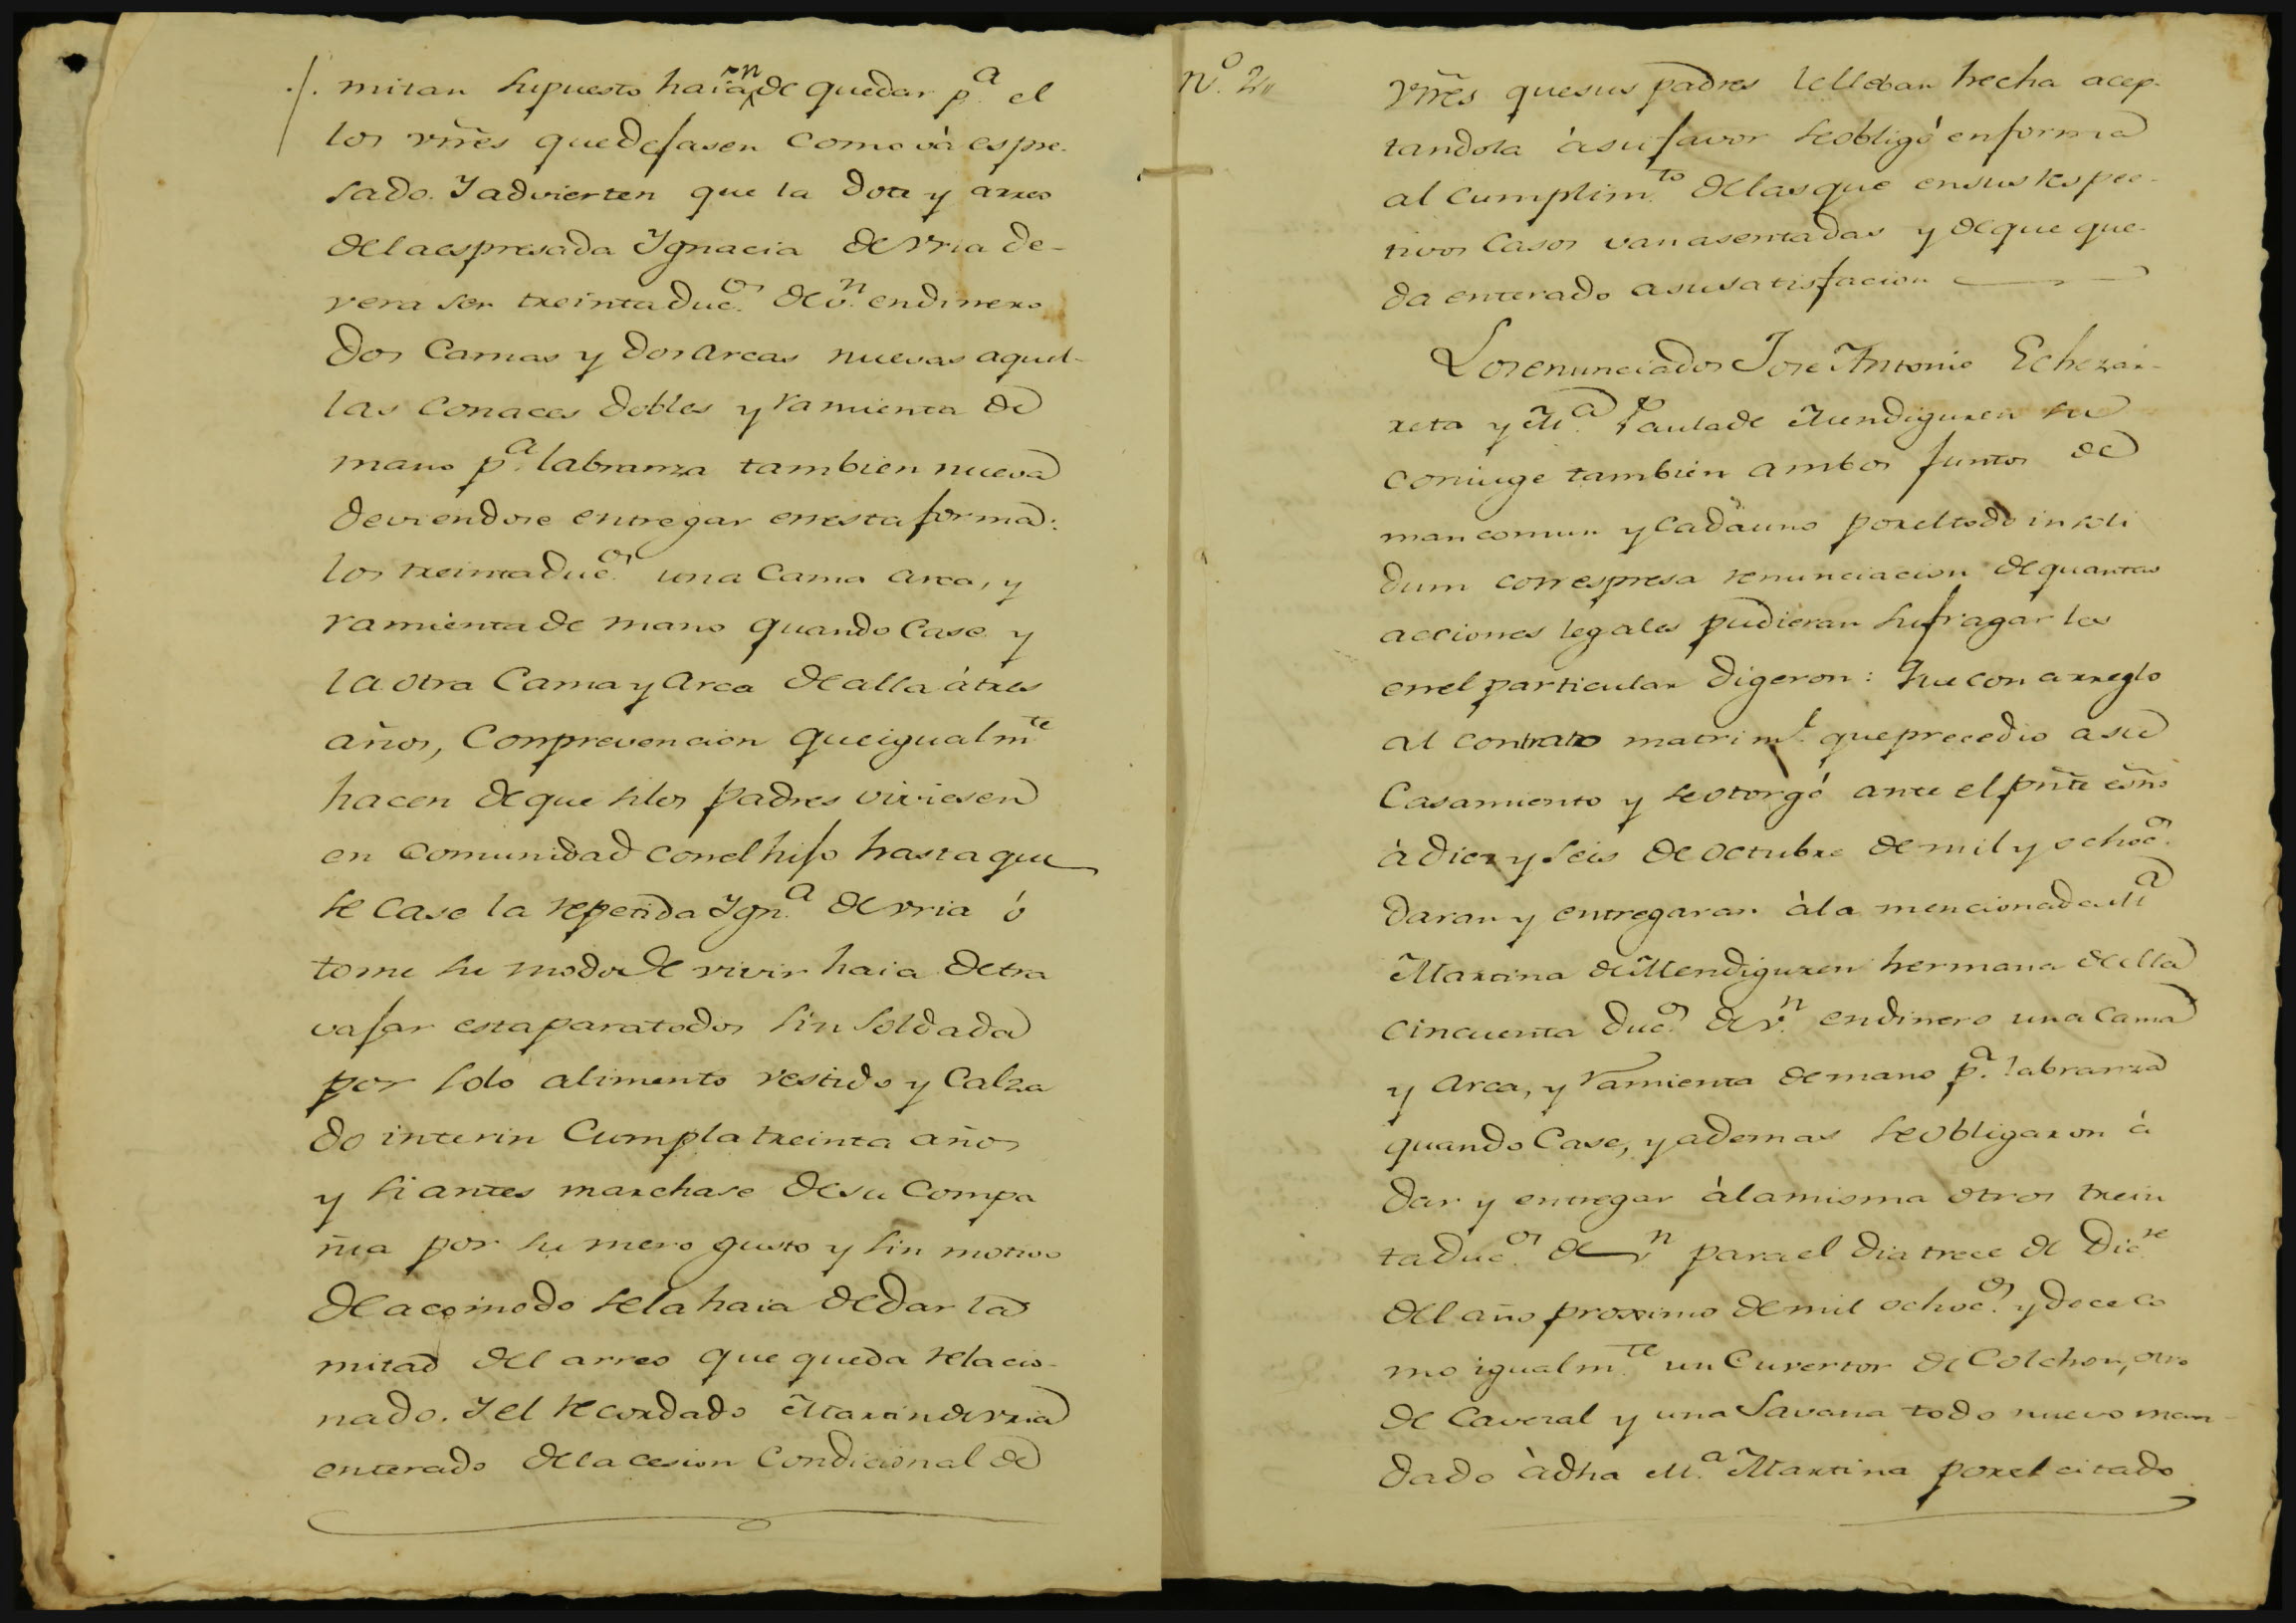 mitan supuesto haian de quedar p.a el
los vnēs que dejasen como và espre-
sado. Y advierten que la dote y arreo
de la espresada Ygnacia de Vria de-
vera ser treinta duc.os de v.n en dinero
dos Camas y dos arcas nuevas aquel-
las con aces dobles y ramienta de
mano p.a labranza tambien nueva
deviendose entregar en esta forma:
los treinta duc.os una Cama arca, y
ramienta de mano quando Case y
la otra Cama y Arca de alla à tres
años, Con prevencion que igualm.te
hacen de que si los padres viviesen
en Comunidad con el hijo hasta que
se Case la repetida Ygn.a de Vria ó
tome su modo de vivir haia de tra
vajar esta para todos sin Soldada
por solo alimento vestido y Calza
do interin Cumpla treinta años
y si antes marchase de su Compa
ñia por su mero gusto y sin motivo
de acomodo se la haia de dar la
mitad del arreo que queda relacio-
nado. Y el recordado Martin de Vria
enterado de la cesion Condicional de
N.o 2,,
vnēs que sus padres le lleban hecha acep-
tandola à su favor se obligó en forma
al cumplim.to de las que en sus respec-
tivos Casos van asentadas y de que que-
da enterado a su satisfacion
Los enunciados Jose Antonio Echezar-
reta y M.a Paula de Mendiguren su
coniuge tambien ambos juntos de
mancomun y cada uno por el todo insoli
dum con espresa renunciacion de quantas
acciones legales pudieran sufragarles
en el particular digeron: Que con arreglo
al contrato matrim.l que precedio a su
Casamiento y se otorgó ante el pn̄te esn̄o
à diez y seis de octubre de mil y ochoc.os
daran y entregaran à la mencionada M.a
Martina de Mendiguren hermana de ella
cincuenta duc.os de v.n en dinero una Cama
y Arca, y ramienta de mano p.a labranza
quando Case, y ademas se obligaron à
dar y entregar à la misma otros trein
ta duc.os de v.n para el dia trece de Dic.re
del año proximo de mil ochoc.os y doce co
mo igualm.te un Cuvertor de Colchon, otro
de Cavezal y una Savana todo nuevo man-
dado à dha M.a Martina por el citado